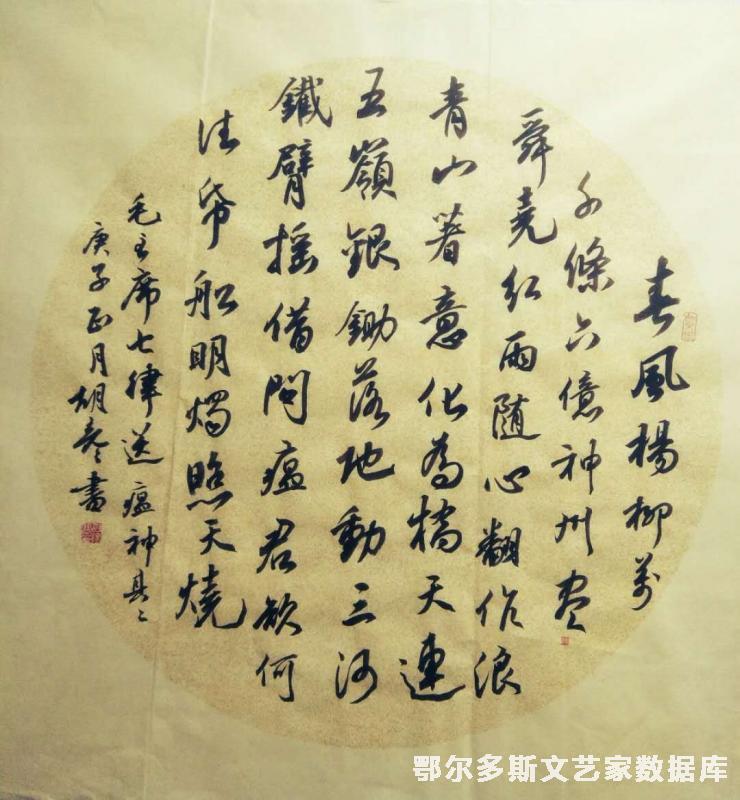 春風楊柳萬
千條六億神州盡
舜堯紅雨隨心翻作浪
青山著意化為橋天連
五嶺銀鋤落地動三河
鐵臂摇借問瘟君欲何
往帋船明燭照天燒
毛主席七律送瘟神其二
庚子正月胡書
鄂尔多斯文艺家数据库